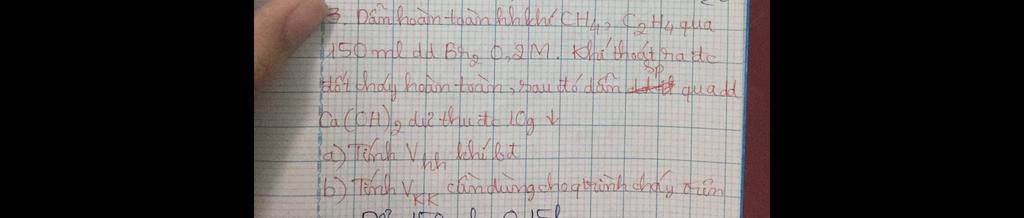 3. Dẫn hoàn toàn hh khí CH4, C2H4 qua
150ml dd Br2 0,2M. Khí thoát ra đc
đốt cháy hoàn toàn, sau đó dẫn sp qua dd
Ca(OH)2 dư thu đc 10g ↓
a) Tính Vhh khí bđ
b) Tính VKK cần dùng cho q trình cháy trên